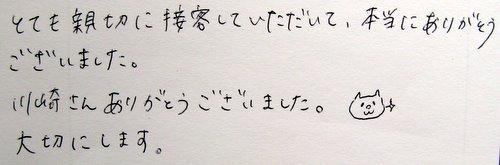 とても親切に接客していただいて、本当にありがとう
ございました。
川崎さんありがとうございました。
大切にします。